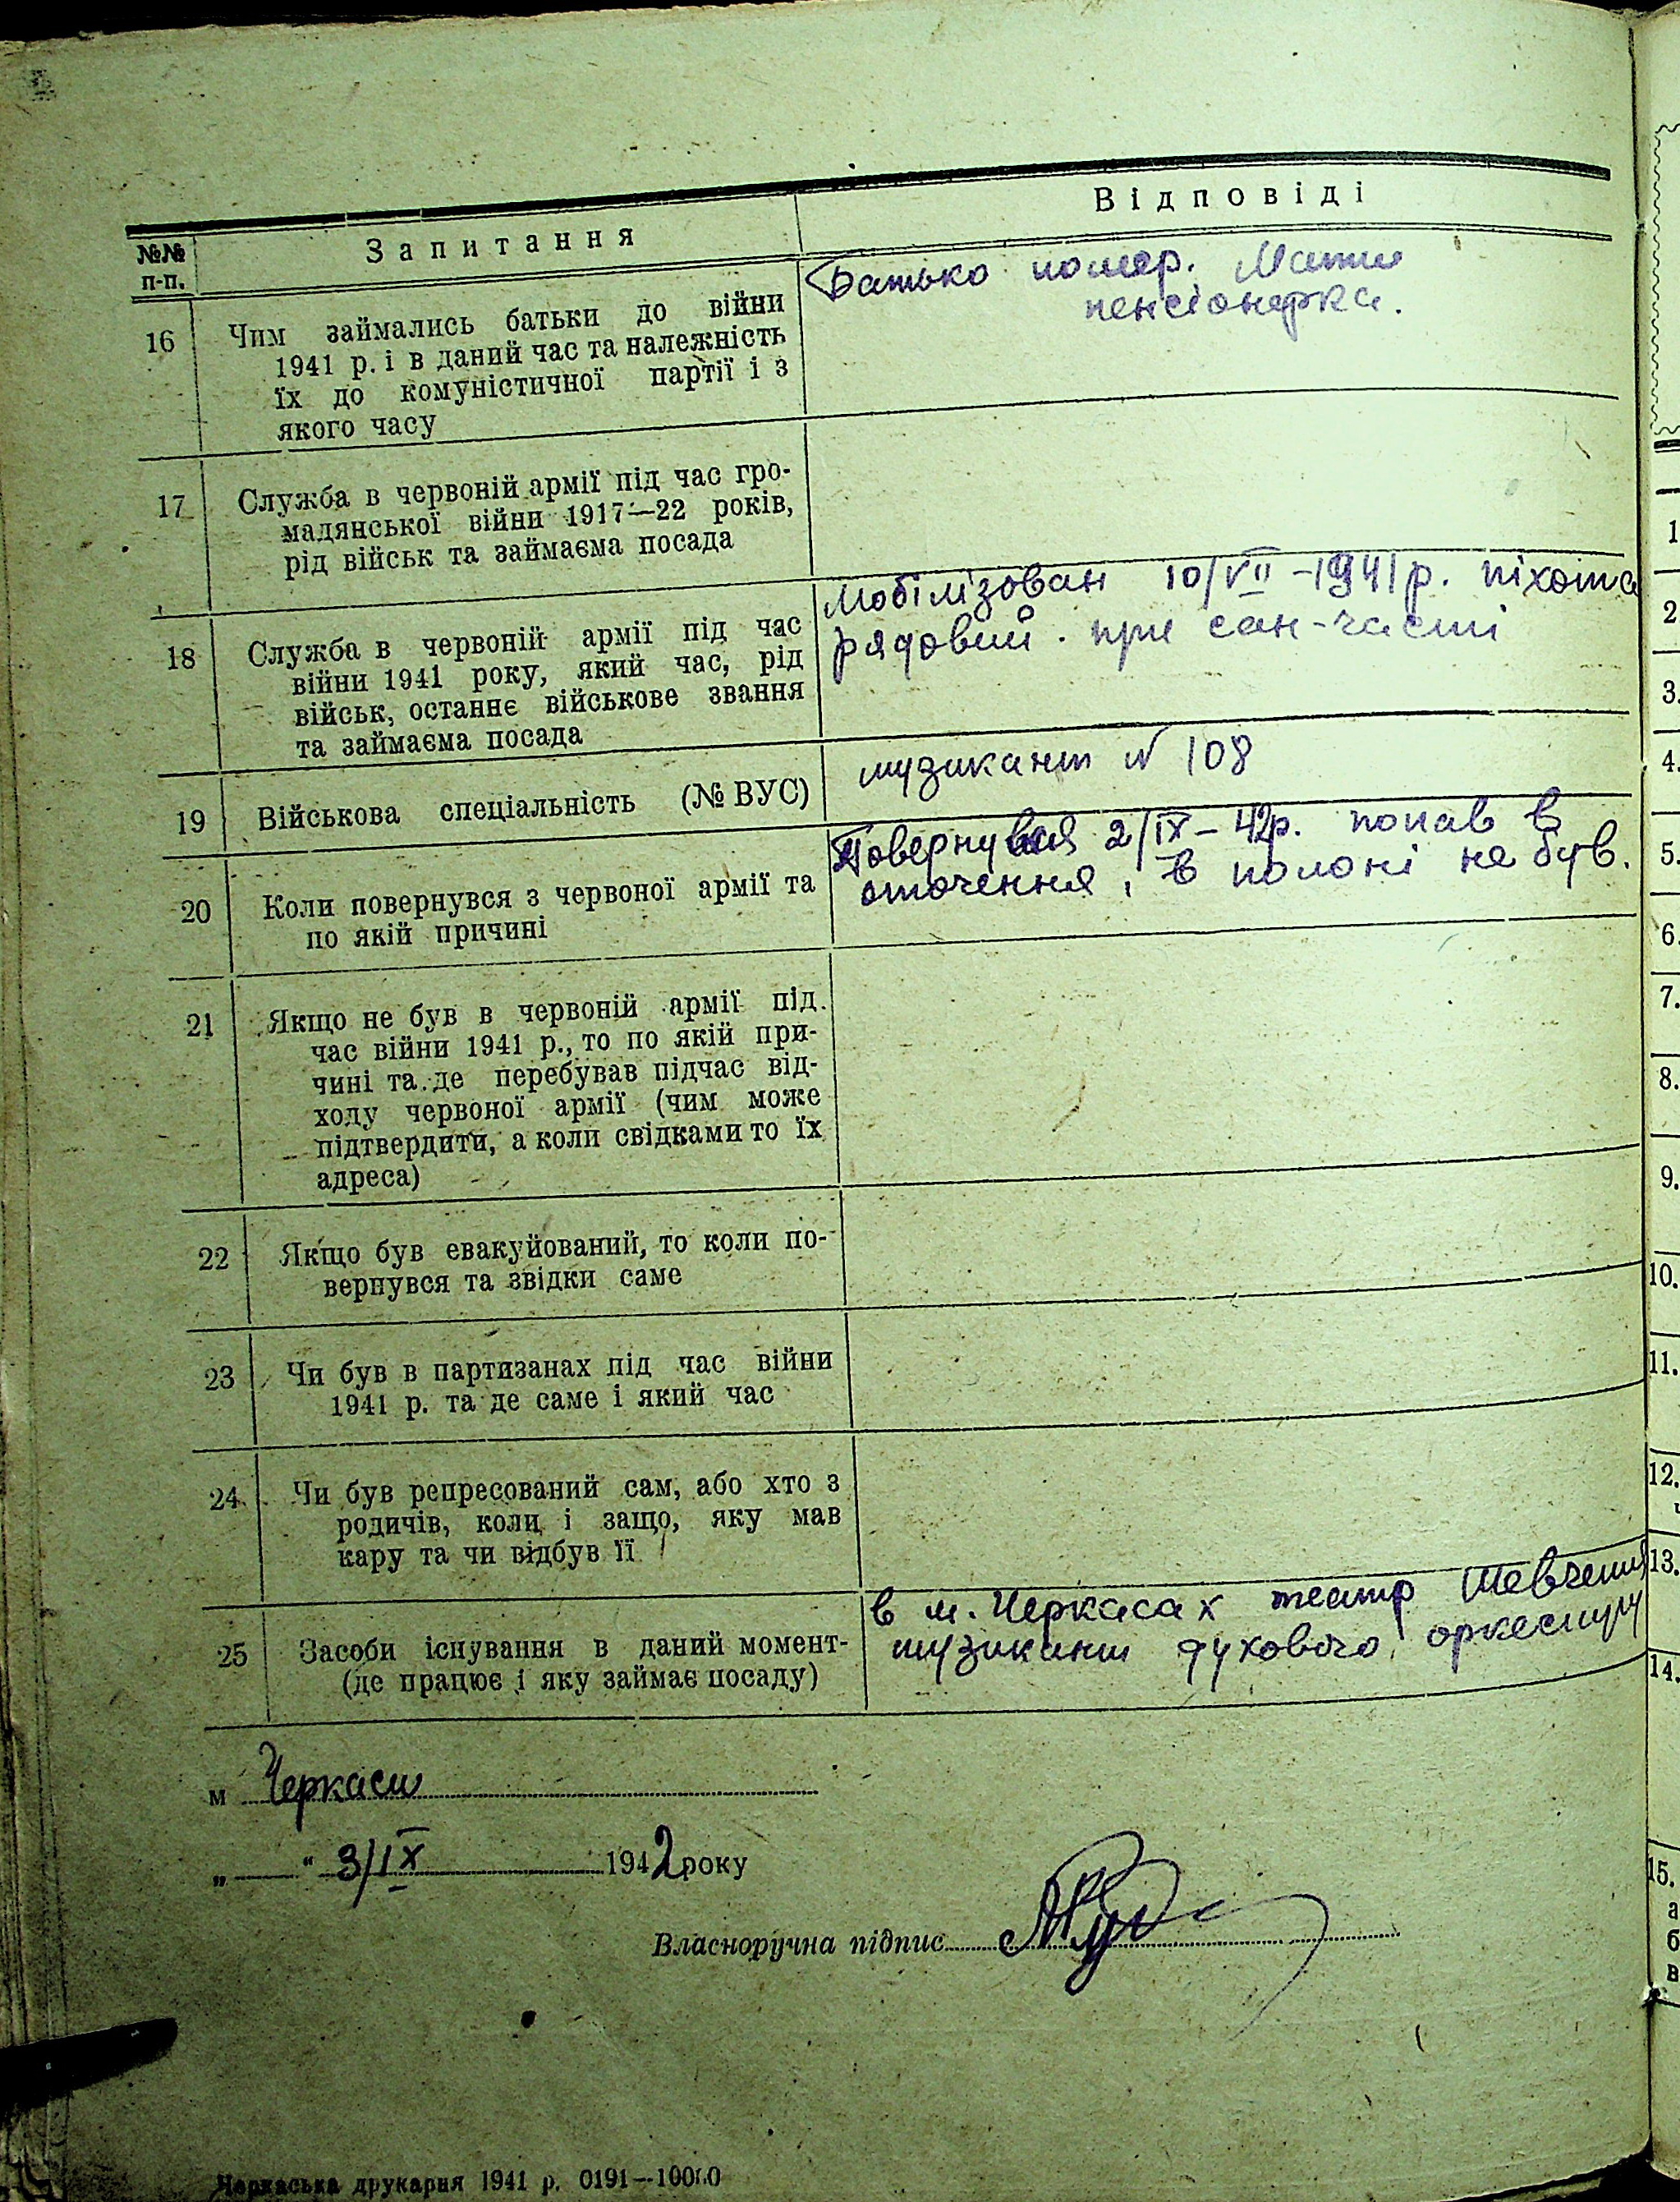 №№ п-п. Запитання Відповіді
16 Чим займались батьки до війни
1941 р. і в даний час та належність
їх до комуністичної партії і з
якого часу
Батько помер. Мати
пенсіонерка.
17 Служба в червоній армії під час гро-
мадянської війни 1917—22 років,
рід військ та займаєма посада
18 Служба в червоній армії під час
війни 1941 року, який час, рід
військ, останнє військове звання
та займаєма посада
Мобілізован 10/VII-1941р. піхота
рядовий. при сан-часті
19 Військова спеціальність (№ ВУС)
музикант N 108
20 Коли повернувся з червоної армії та
по якій причині
Повернувся 2/IX-42р. попав в
оточення, в полоні не був.
21 Якщо не був в червоній армії під
час війни 1941 р., то по якій при-
чині та де перебував підчас від-
ходу червоної армії (чим може
підтвердити, а коли свідками то їх
адреса)
22 Якщо був евакуйований, то коли по-
вернувся та звідки саме
23 Чи був в партизанах під час війни
1941 р. та де саме і який час
24 Чи був репресований сам, або хто з
родичів, коли і защо, яку мав
кару та чи відбув її
25 Засоби існування в даний момент-
(де працює і яку займає посаду)
в м. Черкасах театр
музикант духового оркестру
м Черкаси
„ — “ 3/IX 1942 року
Власноручна підпис
Черкаська друкарня 1941 р. 0191—10000
1
2
3.
4.
5.
6.
7.
8.
9.
10.
11.
12.
13.
14.
15.
а
б
в